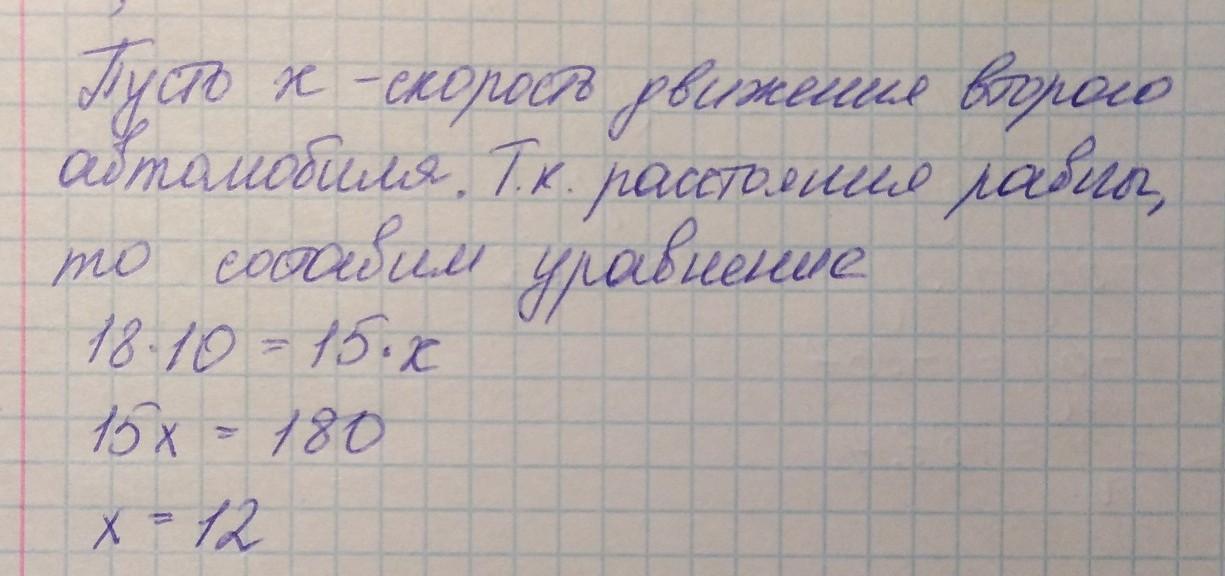 Пусть х - скорость движения второго
автомобиля. Т.к. расстояния равны,
то составим уравнение
18·10 = 15·х
15х = 180
х = 12